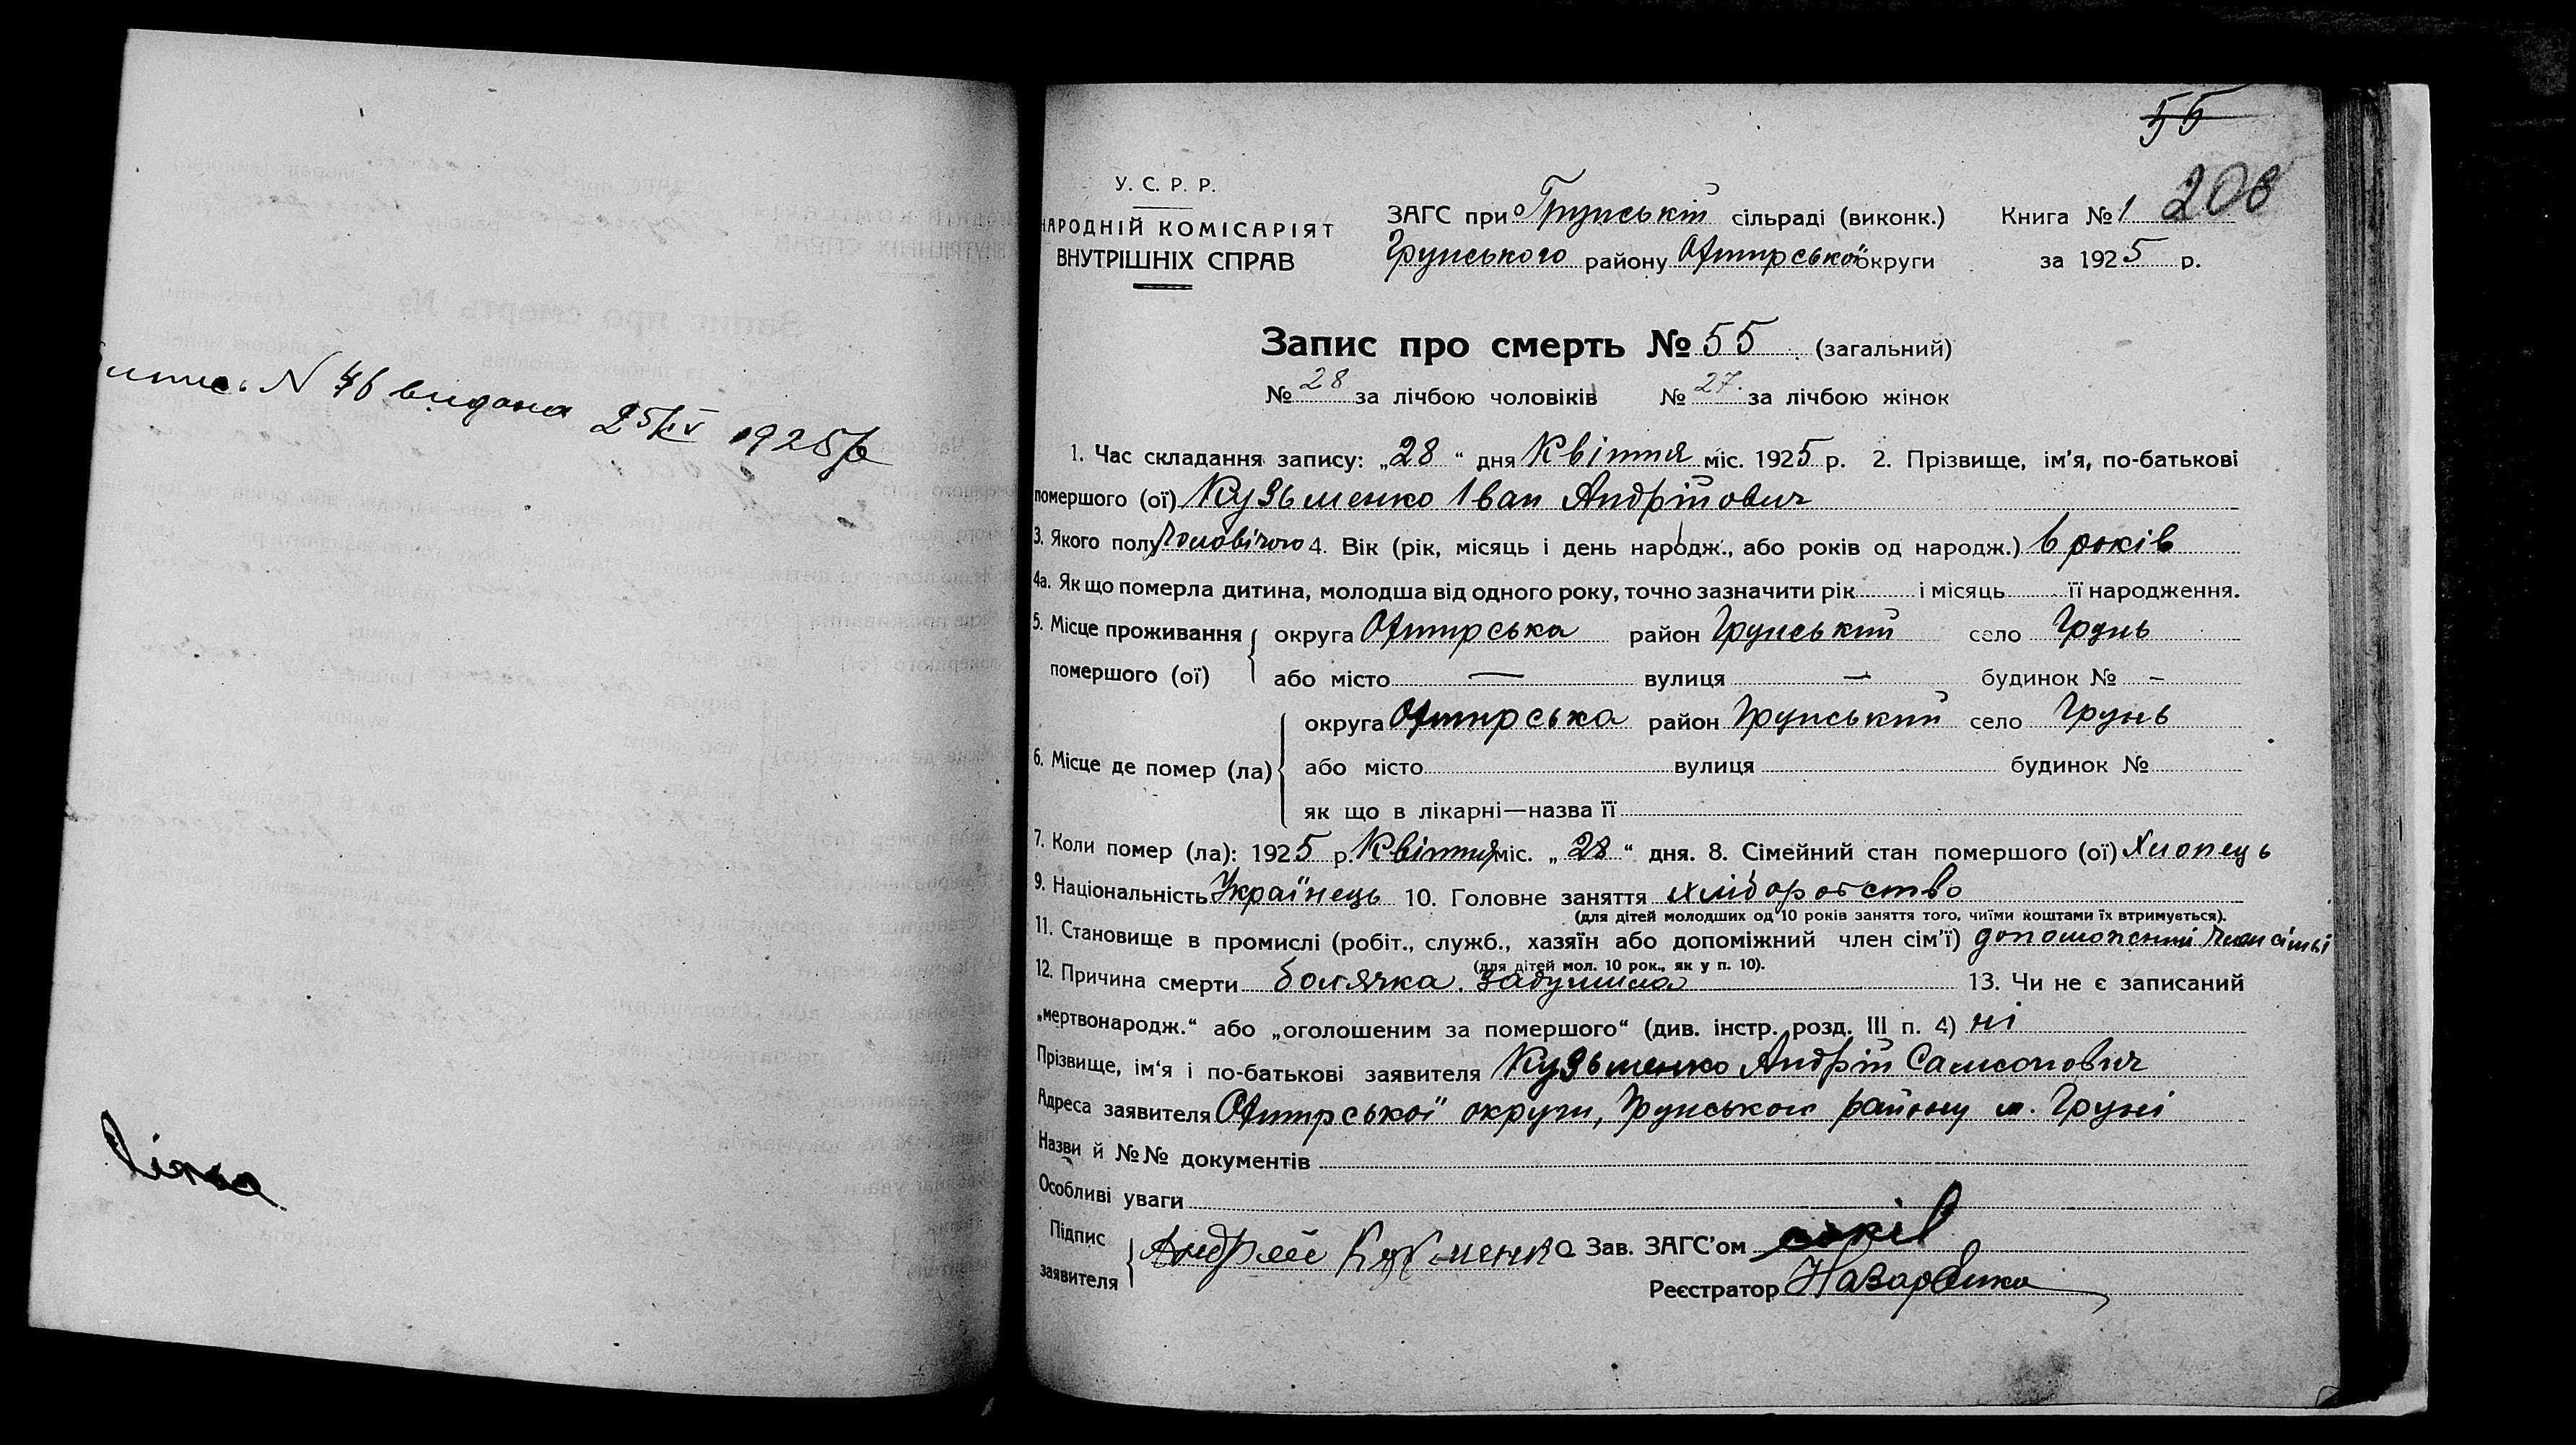 N 46 видана 25/IV 1925 р
55
208
У. С. Р. Р.
НАРОДНІЙ КОМІСАРІЯТ
ВНУТРІШНІХ СПРАВ
ЗАГС при Грунській сільраді (виконк.)
Грунського району Охтирської округи
Книга № 1
за 1925 р.
Запис про смерть № 55 (загальний)
№ 28 за лічбою чоловіків № 27 за лічбою жінок
1. Час складання запису: „28“ дня Квітня міс. 1925 р. 2. Прізвище, ім'я, по-батькові
помершого (ої) Кузьменко Іван Андрійович
3. Якого полу Чоловічого 4. Вік (рік, місяць і день народж., або років од народж.) 6 років
4а. Як що померла дитина, молодша від одного року, точно зазначити рік і місяць її народження.
5. Місце проживання помершого (ої) округа Охтирська район Грунський село Грунь
або місто — вулиця — будинок № -
6. Місце де помер (ла) округа Охтирська район Грунський село Грунь
або місто вулиця будинок №
як що в лікарні—назва її
7. Коли помер (ла): 1925 р. Квітня міс. „28“ дня. 8. Сімейний стан помершого (ої) Хлопець
9. Національність Українець 10. Головне заняття хліборобство
(для дітей молодших од 10 років заняття того, чиїми коштами їх втримується).
11. Становище в промислі (робіт., служб., хазяїн або допоміжний член сім'ї) допоможений член сімьі
(для дітей мол. 10 рок., як у п. 10).
12. Причина смерти болячка задушила 13. Чи не є записаний
„мертвонародж.“ або „оголошеним за помершого“ (див. інстр. розд. III п. 4) ні
Прізвище, ім'я і по-батькові заявителя Кузьменко Андрій Самсонович
Адреса заявителя Охтирської округи, Грунського району м. Груні
Назви й №№ документів
Особливі уваги
Підпис заявителя Андрей Кузьменко Зав. ЗАГС'ом
Реєстратор